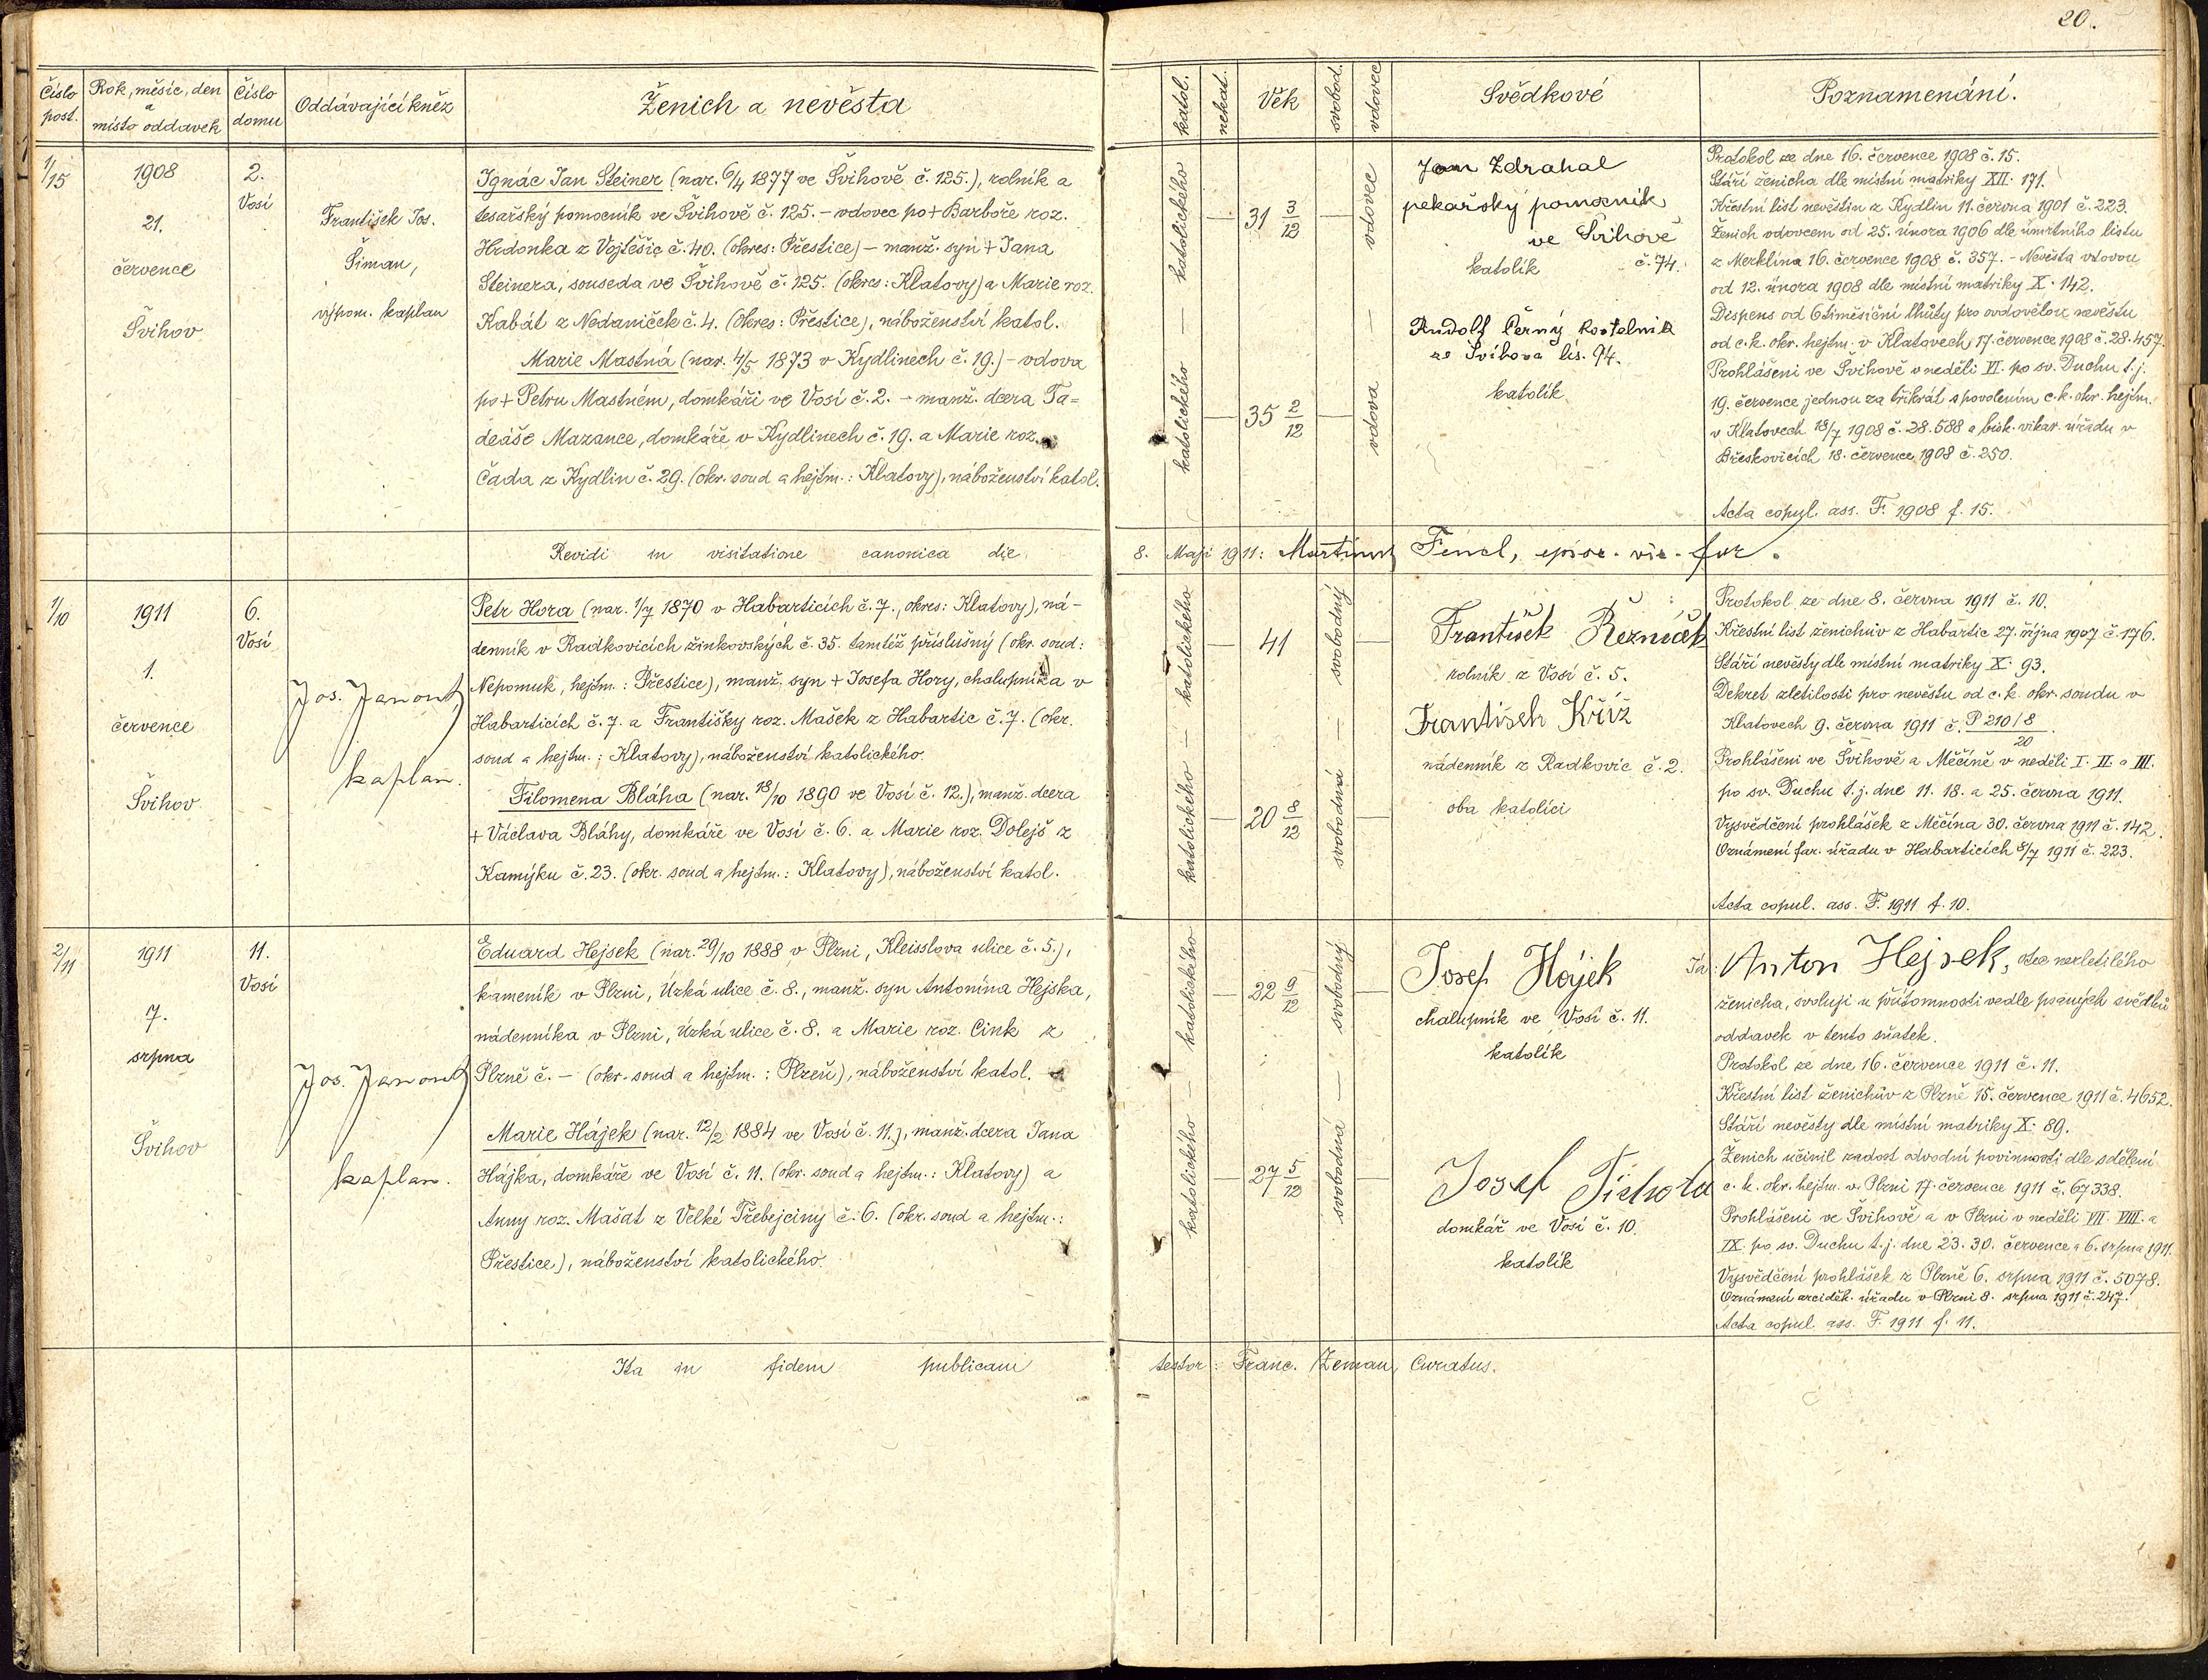 20.
Číslo post.
Rok, měsíc, den
a
místo oddavek
Číslo domu
Oddávající kněz
Ženich a nevěsta
katol.
nekat.
Věk
svobod.
vdovec
Svědkové
Poznamenání.
1/15
1908
21.
července
Švihov
2.
Vosí
František Jos.
Šiman,
výpom. kaplan
Ignác Jan Steiner (nar. 6/4 1877 ve Švihově č. 125.), rolník a
tesařský pomocník ve Švihově č. 125. – vdovec po + Barboře roz.
Hrdonka z Vojtěšic č. 40. (okres: Přestice) – manž. syn + Jana
Steinera, souseda ve Švihově č. 125. (okres: Klatovy) a Marie roz.
Kabát z Nedaniček č. 4. (okres: Přestice), náboženství katol.
Marie Mastná (nar. 4/5 1873 v Kydlinech č. 19.) – vdova
po + Petru Mastném, domkáři ve Vosí č. 2. – manž. dcera Ta=
deáše Mazance, domkáře v Kydlinech č. 19. a Marie roz.
Čada z Kydlin č. 29. (okr. soud a hejtm.: Klatovy), náboženství katol.
katolického — katolického
31 3/12
35 2/12
vdovec — vdova
Jan Zdrahal
pekařský pomocník
ve Švihově
katolík č. 74.
Rudolf Černý kostelník
ze Švihova čís. 94.
katolík
Protokol ze dne 16. července 1908 č. 15.
Stáří ženicha dle místní matriky XII. 171.
Křestní list nevěstin z Kydlin 11. června 1901 č. 223.
Ženich vdovcem od 25. února 1906 dle úmrtního listu
z Merklína 16. července 1908 č. 357. – Nevěsta vdovou
od 12. února 1908 dle místní matriky X. 142.
Dispens od 6timěsíční lhůty pro ovdovělou nevěstu
od c. k. okr. hejtm. v Klatovech 17. července 1908 č. 28.457.
Prohlášeni ve Švihově v neděli VI. po sv. Duchu t. j.
19. července jednou za třikrát s povolením c. k. okr. hejtm.
v Klatovech 18/7 1908 č. 28.588 a bisk. vikar. úřadu v
Břeskovicích 18. července 1908 č. 250.
Acta copul. ass. F. 1908 f. 15.
Revidi in visitatione canonica die 8. Maji 1911: Martinus Fencl, episc. vic. for.
1/10
1911
1.
července
Švihov
6.
Vosí
Jos. Janout,
kaplan.
Petr Hora (nar. 1/7 1870 v Habarticích č. 7., okres: Klatovy), ná-
denník v Radkovicích žinkovských č. 35. tamtéž příslušný (okr. soud:
Nepomuk, hejtm.: Přestice), manž. syn + Josefa Hory, chalupníka v
Habarticích č. 7. a Františky roz. Mašek z Habartic č. 7. (okr.
soud a hejtm.: Klatovy), náboženství katolického.
Filomena Bláha (nar. 18/10 1890 ve Vosí č. 12.), manž. dcera
+ Václava Bláhy, domkáře ve Vosí č. 6. a Marie roz. Dolejš z
Kamýku č. 23. (okr. soud a hejtm.: Klatovy), náboženství katol.
katolického — katolického
41
20 8/12
svobodný — svobodná
František Řezníček
rolník z Vosí č. 5.
Frantisek Kříž
nádenník z Radkovic č. 2.
oba katolíci
Protokol ze dne 8. června 1911 č. 10.
Křestní list ženichův z Habartic 27. října 1907 č. 176.
Stáří nevěsty dle místní matriky X. 93.
Dekret zletilosti pro nevěstu od c. k. okr. soudu v
Klatovech 9. června 1911 č. P 210/8 / 20.
Prohlášeni ve Švihově a Měčíně v neděli I. II. a III.
po sv. Duchu t. j. dne 11. 18. a 25. června 1911.
Vysvědčení prohlášek z Měčína 30. června 1911 č. 142.
Oznámení far. úřadu v Habarticích 8/7 1911 č. 223.
Acta copul. ass. F. 1911 f. 10.
2/11
1911
7.
srpna
Švihov
11.
Vosí
Jos. Janout,
kaplan.
Eduard Hejsek (nar. 29/10 1888 v Plzni, Kleisslova ulice č. 5.),
kameník v Plzni, Úzká ulice č. 8., manž. syn Antonína Hejska,
nádenníka v Plzni, Úzká ulice č. 8. a Marie roz. Cink z
Plzně č. – (okr. soud a hejtm.: Plzeň), náboženství katol.
Marie Hájek (nar. 12/2 1884 ve Vosí č. 11.), manž. dcera Jana
Hájka, domkáře ve Vosí č. 11. (okr. soud a hejtm.: Klatovy) a
Anny roz. Mašat z Velké Třebejciny č. 6. (okr. soud a hejtm.:
Přestice), náboženství katolického.
katolického — katolického
22 9/12
27 5/12
svobodný — svobodná
Josef Hájek
chalupník ve Vosí č. 11.
katolík
Josef Tichota
domkář ve Vosí č. 10.
katolík
Já: Anton Hejsek, otec nezletilého
ženicha, svoluji u přítomnosti vedle psaných svědků
oddavek v tento sňatek.
Protokol ze dne 16. července 1911 č. 11.
Křestní list ženichův z Plzně 15. července 1911 č. 4652.
Stáří nevěsty dle místní matriky X. 89.
Ženich učinil zadost odvodní povinnosti dle sdělení
c. k. okr. hejtm. v Plzni 17. července 1911 č. 67338.
Prohlášeni ve Švihově a v Plzni v neděli VII. VIII. a
IX. po sv. Duchu t. j. dne 23. 30. července a 6. srpna 1911.
Vysvědčení prohlášek z Plzně 6. srpna 1911 č. 5078.
Oznámení arciděk. úřadu v Plzni 8. srpna 1911 č. 247.
Acta copul. ass. F. 1911 f. 11.
Ita in fidem publicam testor: Franc. Zeman, Curatus.